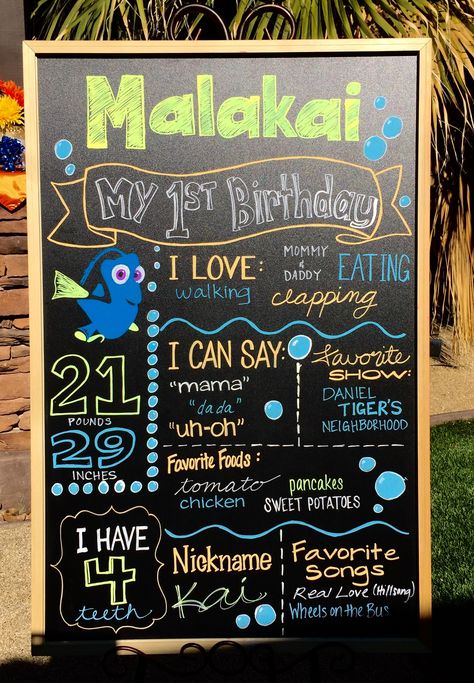 Malakai
MY 1st Birthday
I LOVE:
walking
MOMMY
&
DADDY
EATING
clapping
21
POUNDS
29
INCHES
I CAN SAY:
"mama"
"dada"
"uh-oh"
Favorite
SHOW:
DANIEL
TIGER'S
NEIGHBORHOOD
Favorite Foods:
tomato
chicken
pancakes
SWEET POTATOES
I HAVE
4
teeth
Nickname
Kai
Favorite
Songs
Real Love (Hillsong)
Wheels on the Bus